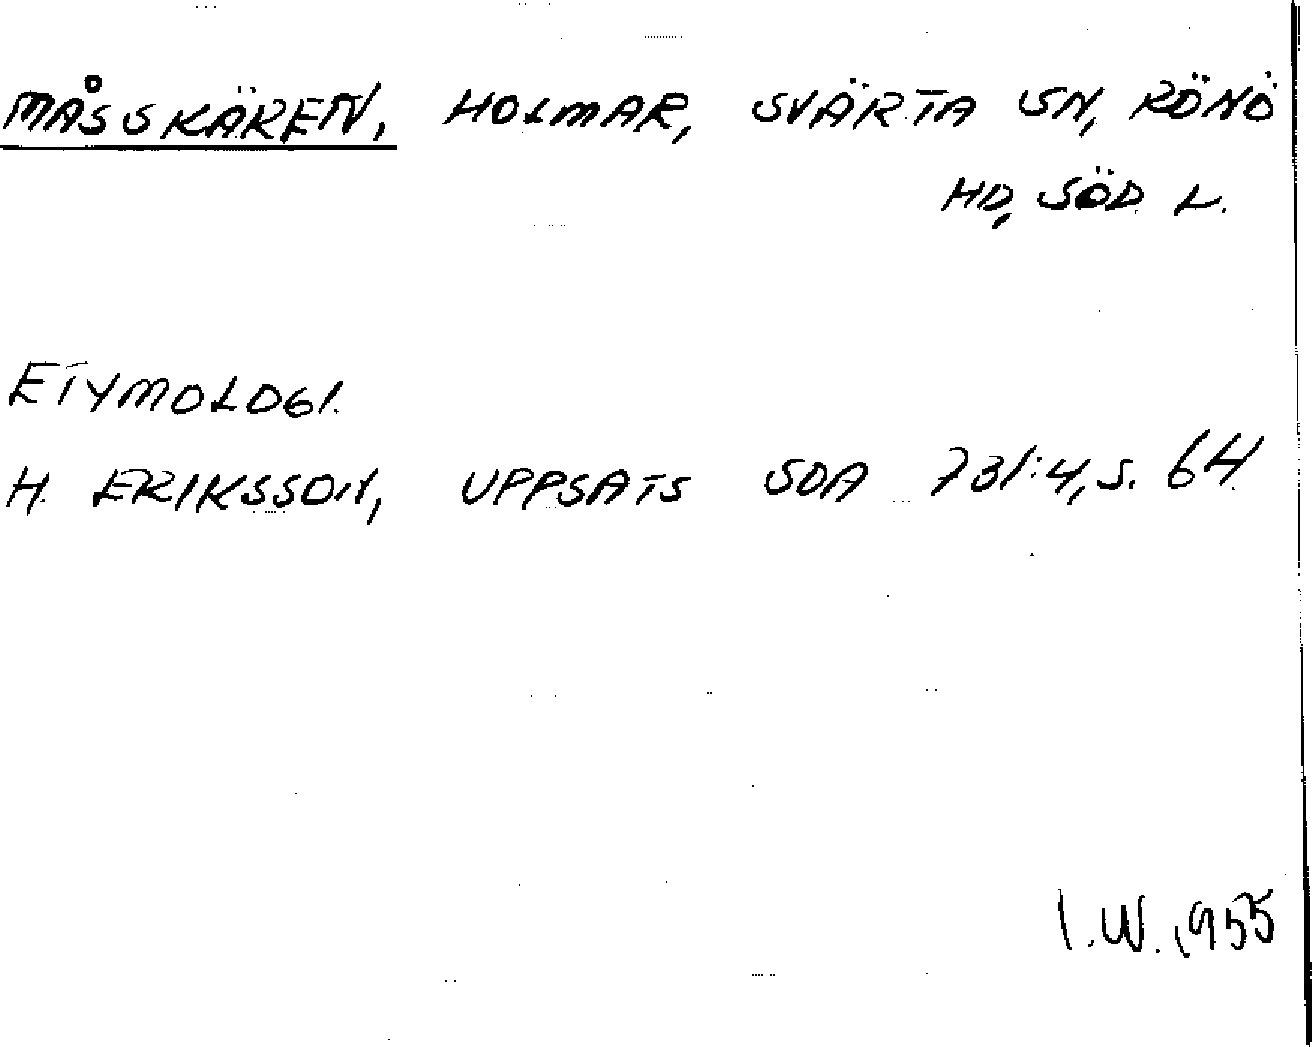 MÅSSKÄREN, HOLMAR, SVÄRTA SN, RÖNÖ
HD, SÖD. L.
ETYMOLOGI.
H. ERIKSSON, UPPSATS SOA 731:4, S. 64.
I.W. 1955